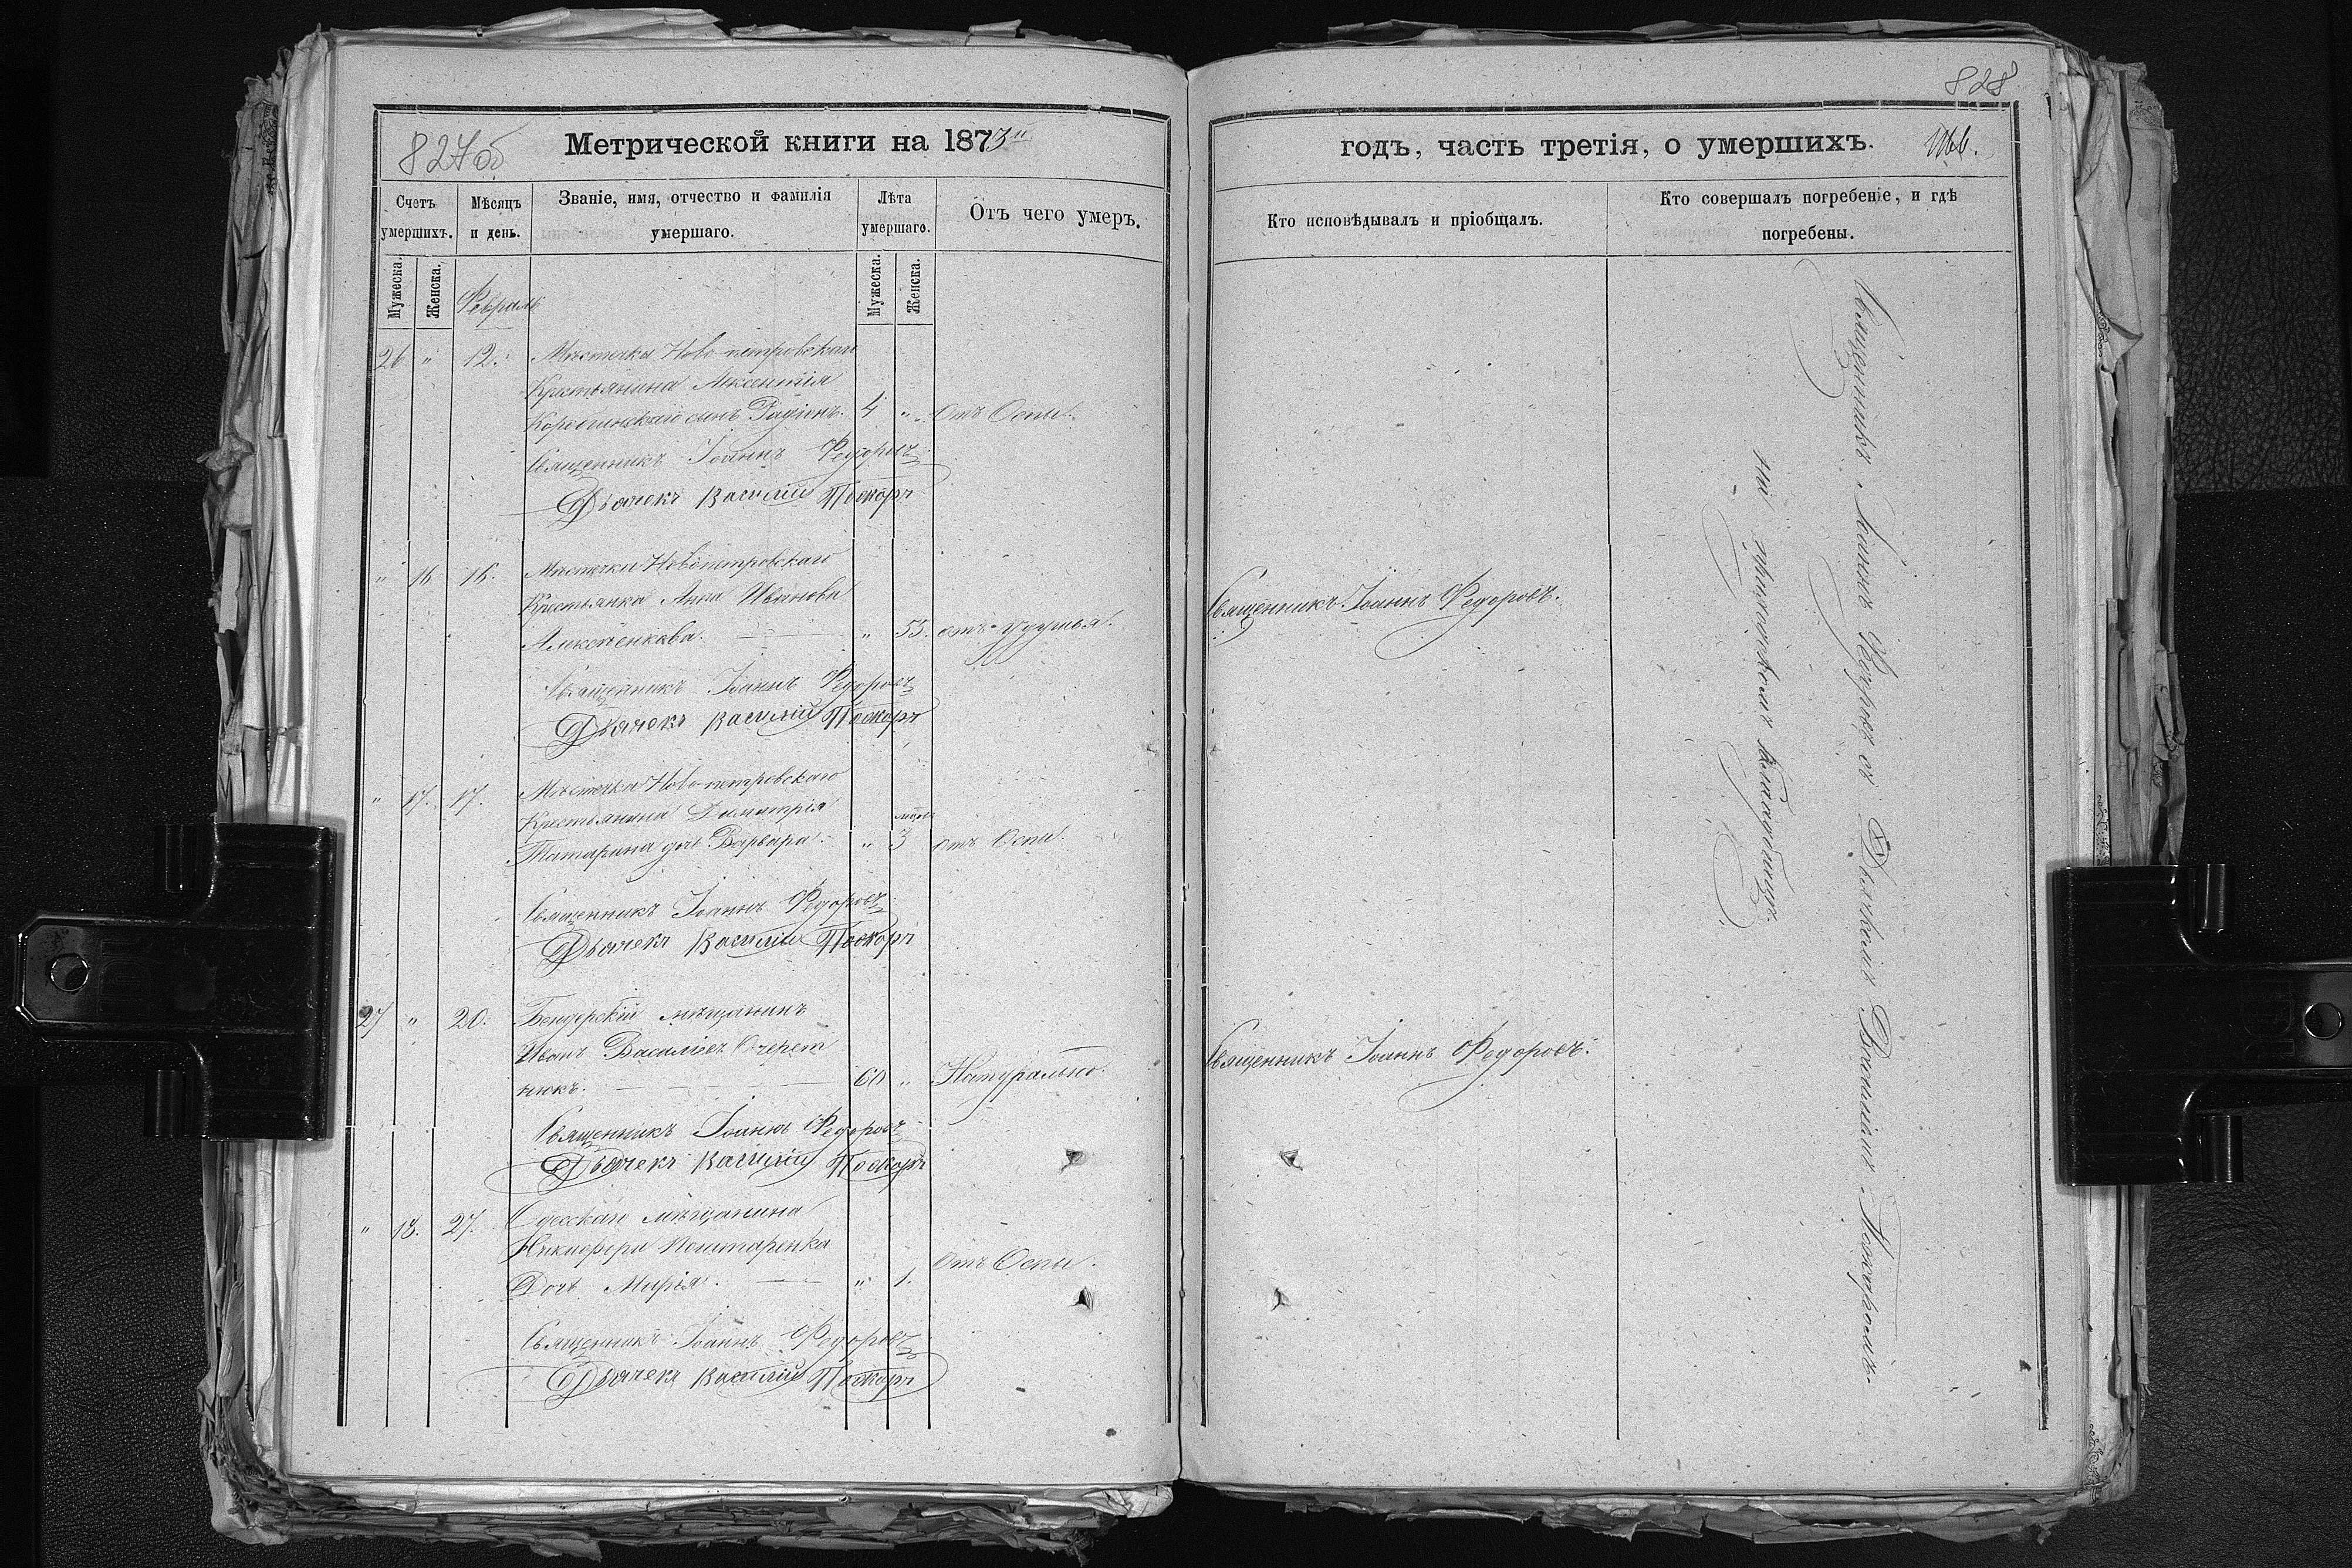 827об
Метрической книги на 1873й
Счетъ умершихъ.
Мѣсяцъ и день.
Званіе, имя, отчество и фамилія умершаго.
Лѣта умершаго.
Отъ чего умеръ.
Мужеска.
Женска.
Мужеска.
Женска.
Февраль
26 " 12. Мѣстечка Ново-петровскаго
Крестьянина Авксентія
сынъ Радіонъ. 4 " Отъ Оспы.
Священникъ Іоаннъ Федоровъ
Дьячекъ Василій Поскоръ
" 16 16. Мѣстечка Новопетровскаго
Крестьянка Анна Иванова
Алексѣенкова. " 55. отъ удушья.
Священникъ Іоаннъ Федоровъ
Дьячекъ Василій Поскоръ
" 17. 17. Мѣстечка Ново-петровскаго
Крестьянина Димитрія
Татарина дочь Варвара. " 3 отъ Оспы.
Священникъ Іоаннъ Федоровъ
Дьячекъ Василій Поскоръ
27 " 20. Бендерскій мѣщанинъ
Иванъ Василіевъ Очерет
нюкъ. 60 " Натурально.
Священникъ Іоаннъ Федоровъ
Дьячекъ Василій Поскоръ
" 18. 27. Одесскаго мѣщанина
Никифора
Дочь Марія. " 1. Отъ Оспы.
Священникъ Іоаннъ Федоровъ
Дьячекъ Василій Поскоръ
828
годъ, часть третія, о умершихъ.
Кто исповѣдывалъ и пріобщалъ.
Кто совершалъ погребеніе, и гдѣ погребены.
Священникъ Іоаннъ Федоровъ.
Священникъ Іоаннъ Федоровъ.
Священникъ Іоаннъ Федоровъ съ Дьячкомъ Василіемъ Поскоромъ.
на приходскомъ кладбищѣ.